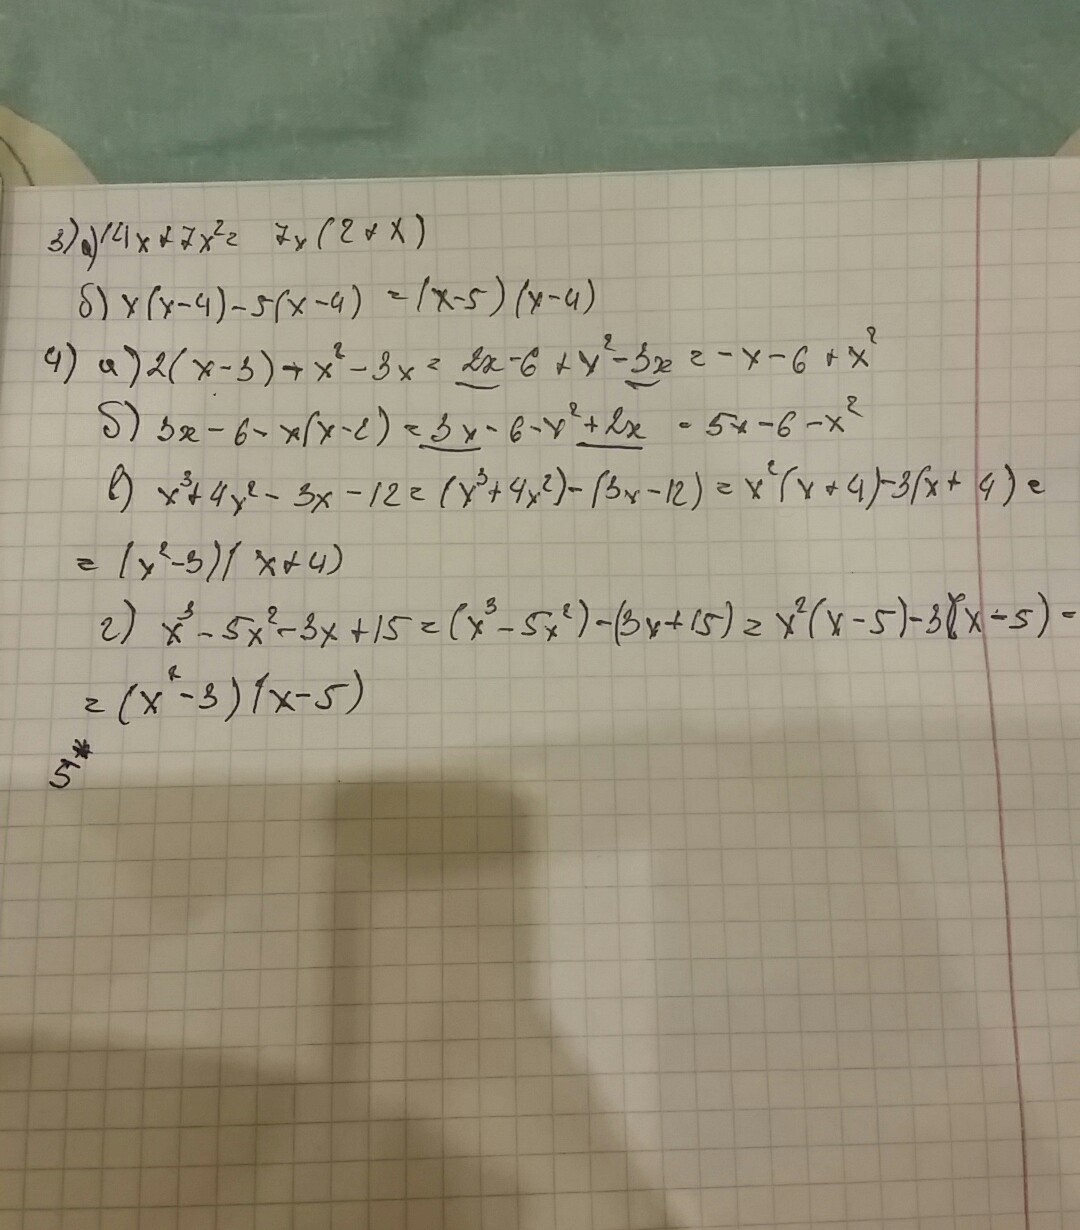 3) а) 14x + 7x² = 7x (2 + x)
б) x(x-4) - 5(x-4) = (x-5)(x-4)
4) а) 2(x-3) + x² - 3x = 2x - 6 + x² - 3x = -x - 6 + x²
б) 3x - 6 - x(x-2) = 3x - 6 - x² + 2x = 5x - 6 - x²
в) x³ + 4x² - 3x - 12 = (x³ + 4x²) - (3x - 12) = x²(x + 4) - 3(x + 4) =
= (x² - 3)(x + 4)
г) x³ - 5x² - 3x + 15 = (x³ - 5x²) - (3x + 15) = x²(x - 5) - 3(x - 5) =
= (x² - 3)(x - 5)
5*